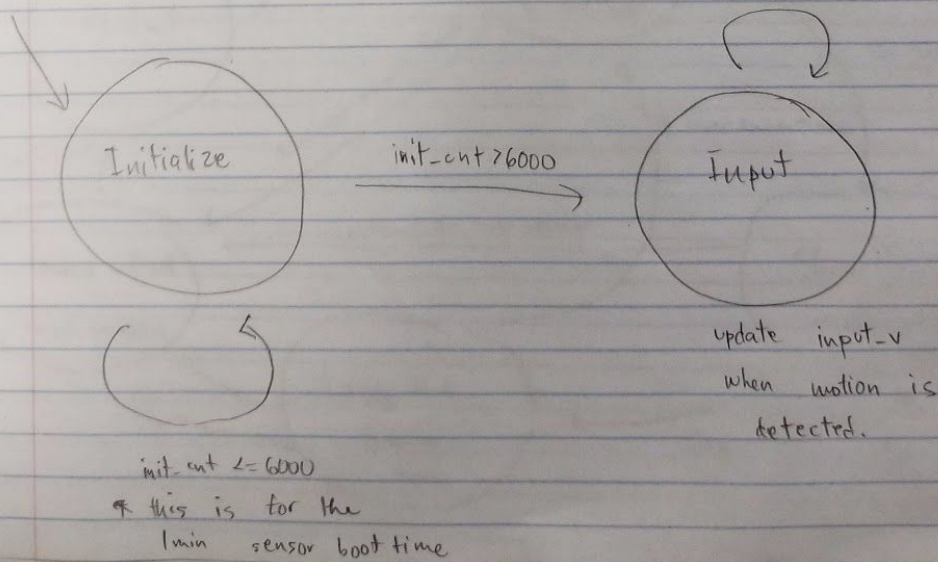 Initialize
init_cnt >6000
Input
update input_v
when motion is
detected.
init_cnt <= 6000
* this is for the
1min sensor boot time